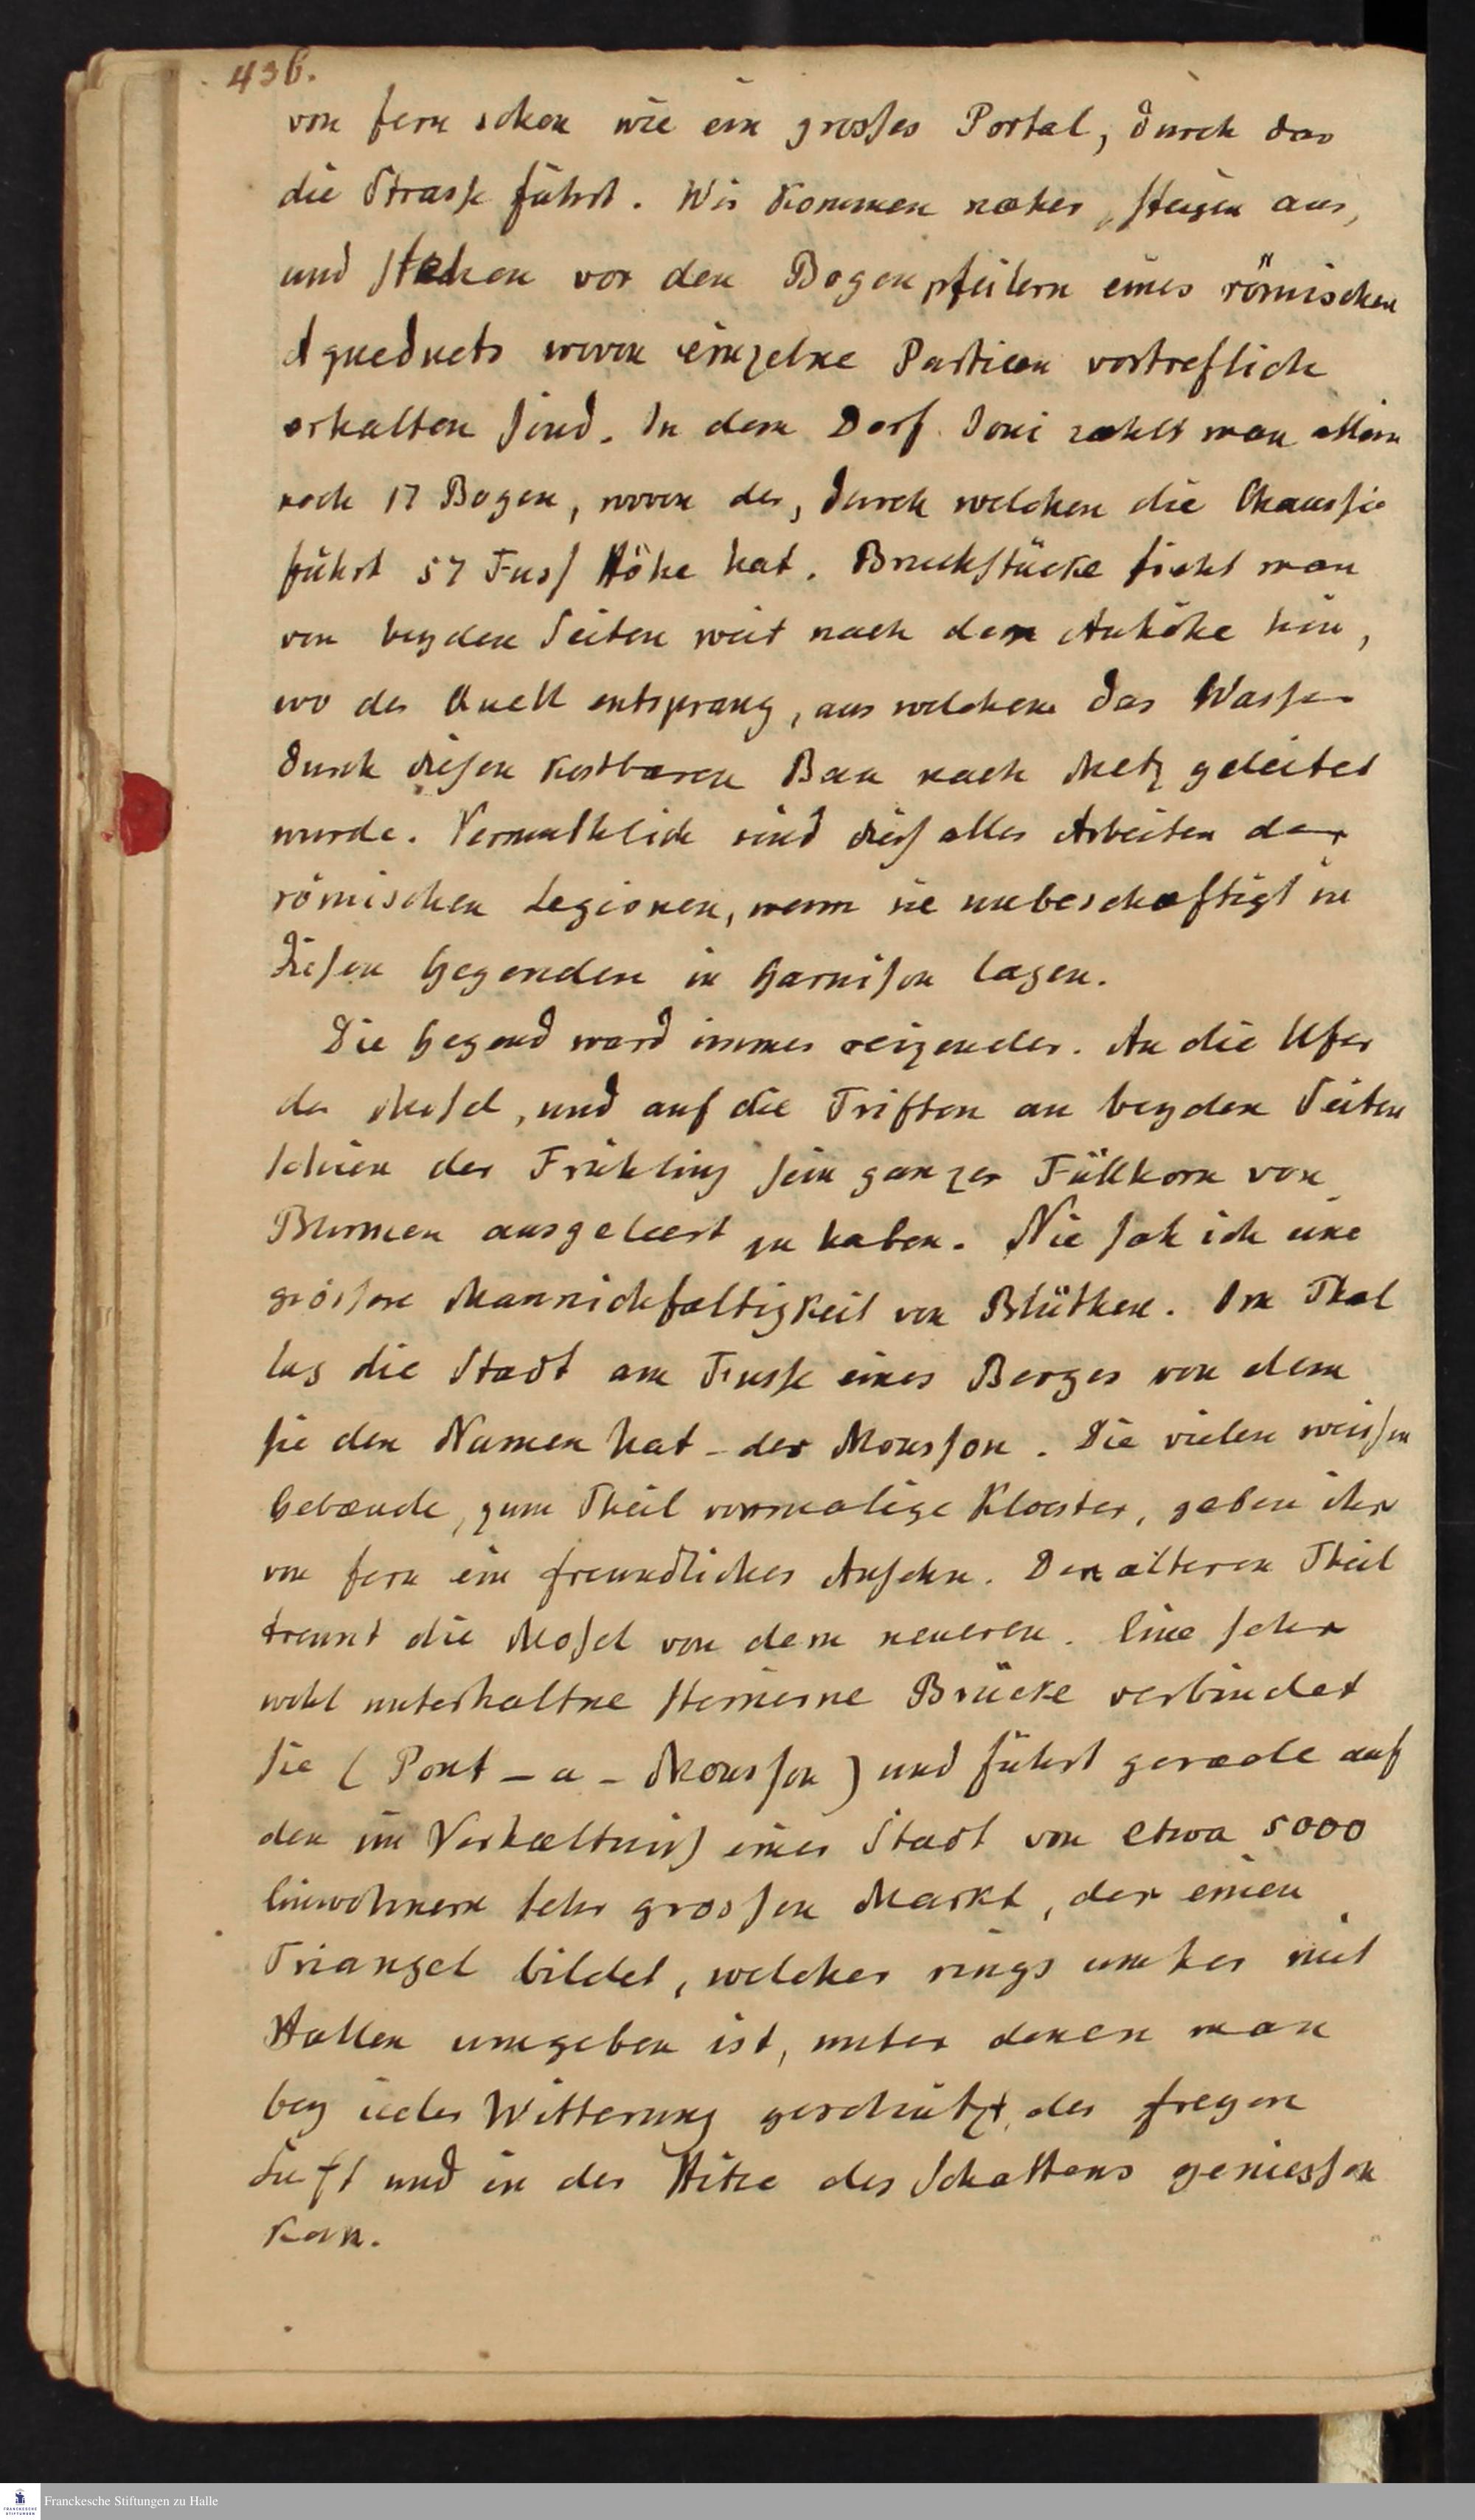 436.
von fern schon wie ein grosses Portal, durch das
die Strasse führt. Wir kommen naher, steigen aus,
und stehen vor den Bogenpfeilern eines römischen
Aqueducts wovon einzelne Partieen vortreflich
erhalten sind. In dem Dorf Joui zahlt man allein
noch 17 Bogen, wovon der, durch welchen die Chaussee
führt 57 Fuss Höhe hat. Bruchstücke sieht man
von beyden Seiten weit nach der Anhöhe hin,
wo der Quell entsprang, aus welchem das Wasser
durch diesen kostbaren Bau nach Metz geleitet
wurde. Vermuthlich sind diess alles Arbeiten der
römischen Legionen, wenn sie unbeschaftigt in
diesen Gegenden in Garnison lagen.
Die Gegend ward immer reizender. An die Ufer
der Mosel, und auf die Triften an beyden Seiten
schien der Frühling sein ganzes Füllhorn von
Blumen ausgeleert zu haben. Nie sah ich eine
grössere Mannichfaltigkeit von Blüthen. Im Thal
lag die Stadt am Fusse eines Berges von dem
sie den Namen hat - der Mousson. Die vielen weissen
Gebaude, zum Theil vormalige Kloester, geben ihr
von fern ein freundliches Ansehn. Den alteren Theil
trennt die Mosel von dem neueren. Eine sehr
wohl unterhaltne steinerne Brücke verbindet
sie (Pont - a - Mousson) und führt gerade auf
den im Verhaeltniss einer Stadt von etwa 5000
Einwohnern sehr grossen Markt, der einen
Triangel bildet, welcher rings umher mit
Hallen umgeben ist, unter denen man
bey ieder Witterung geschützt der freyen
Luft und in der Hitze des Schattens geniessen
kan.
Franckesche Stiftungen zu Halle